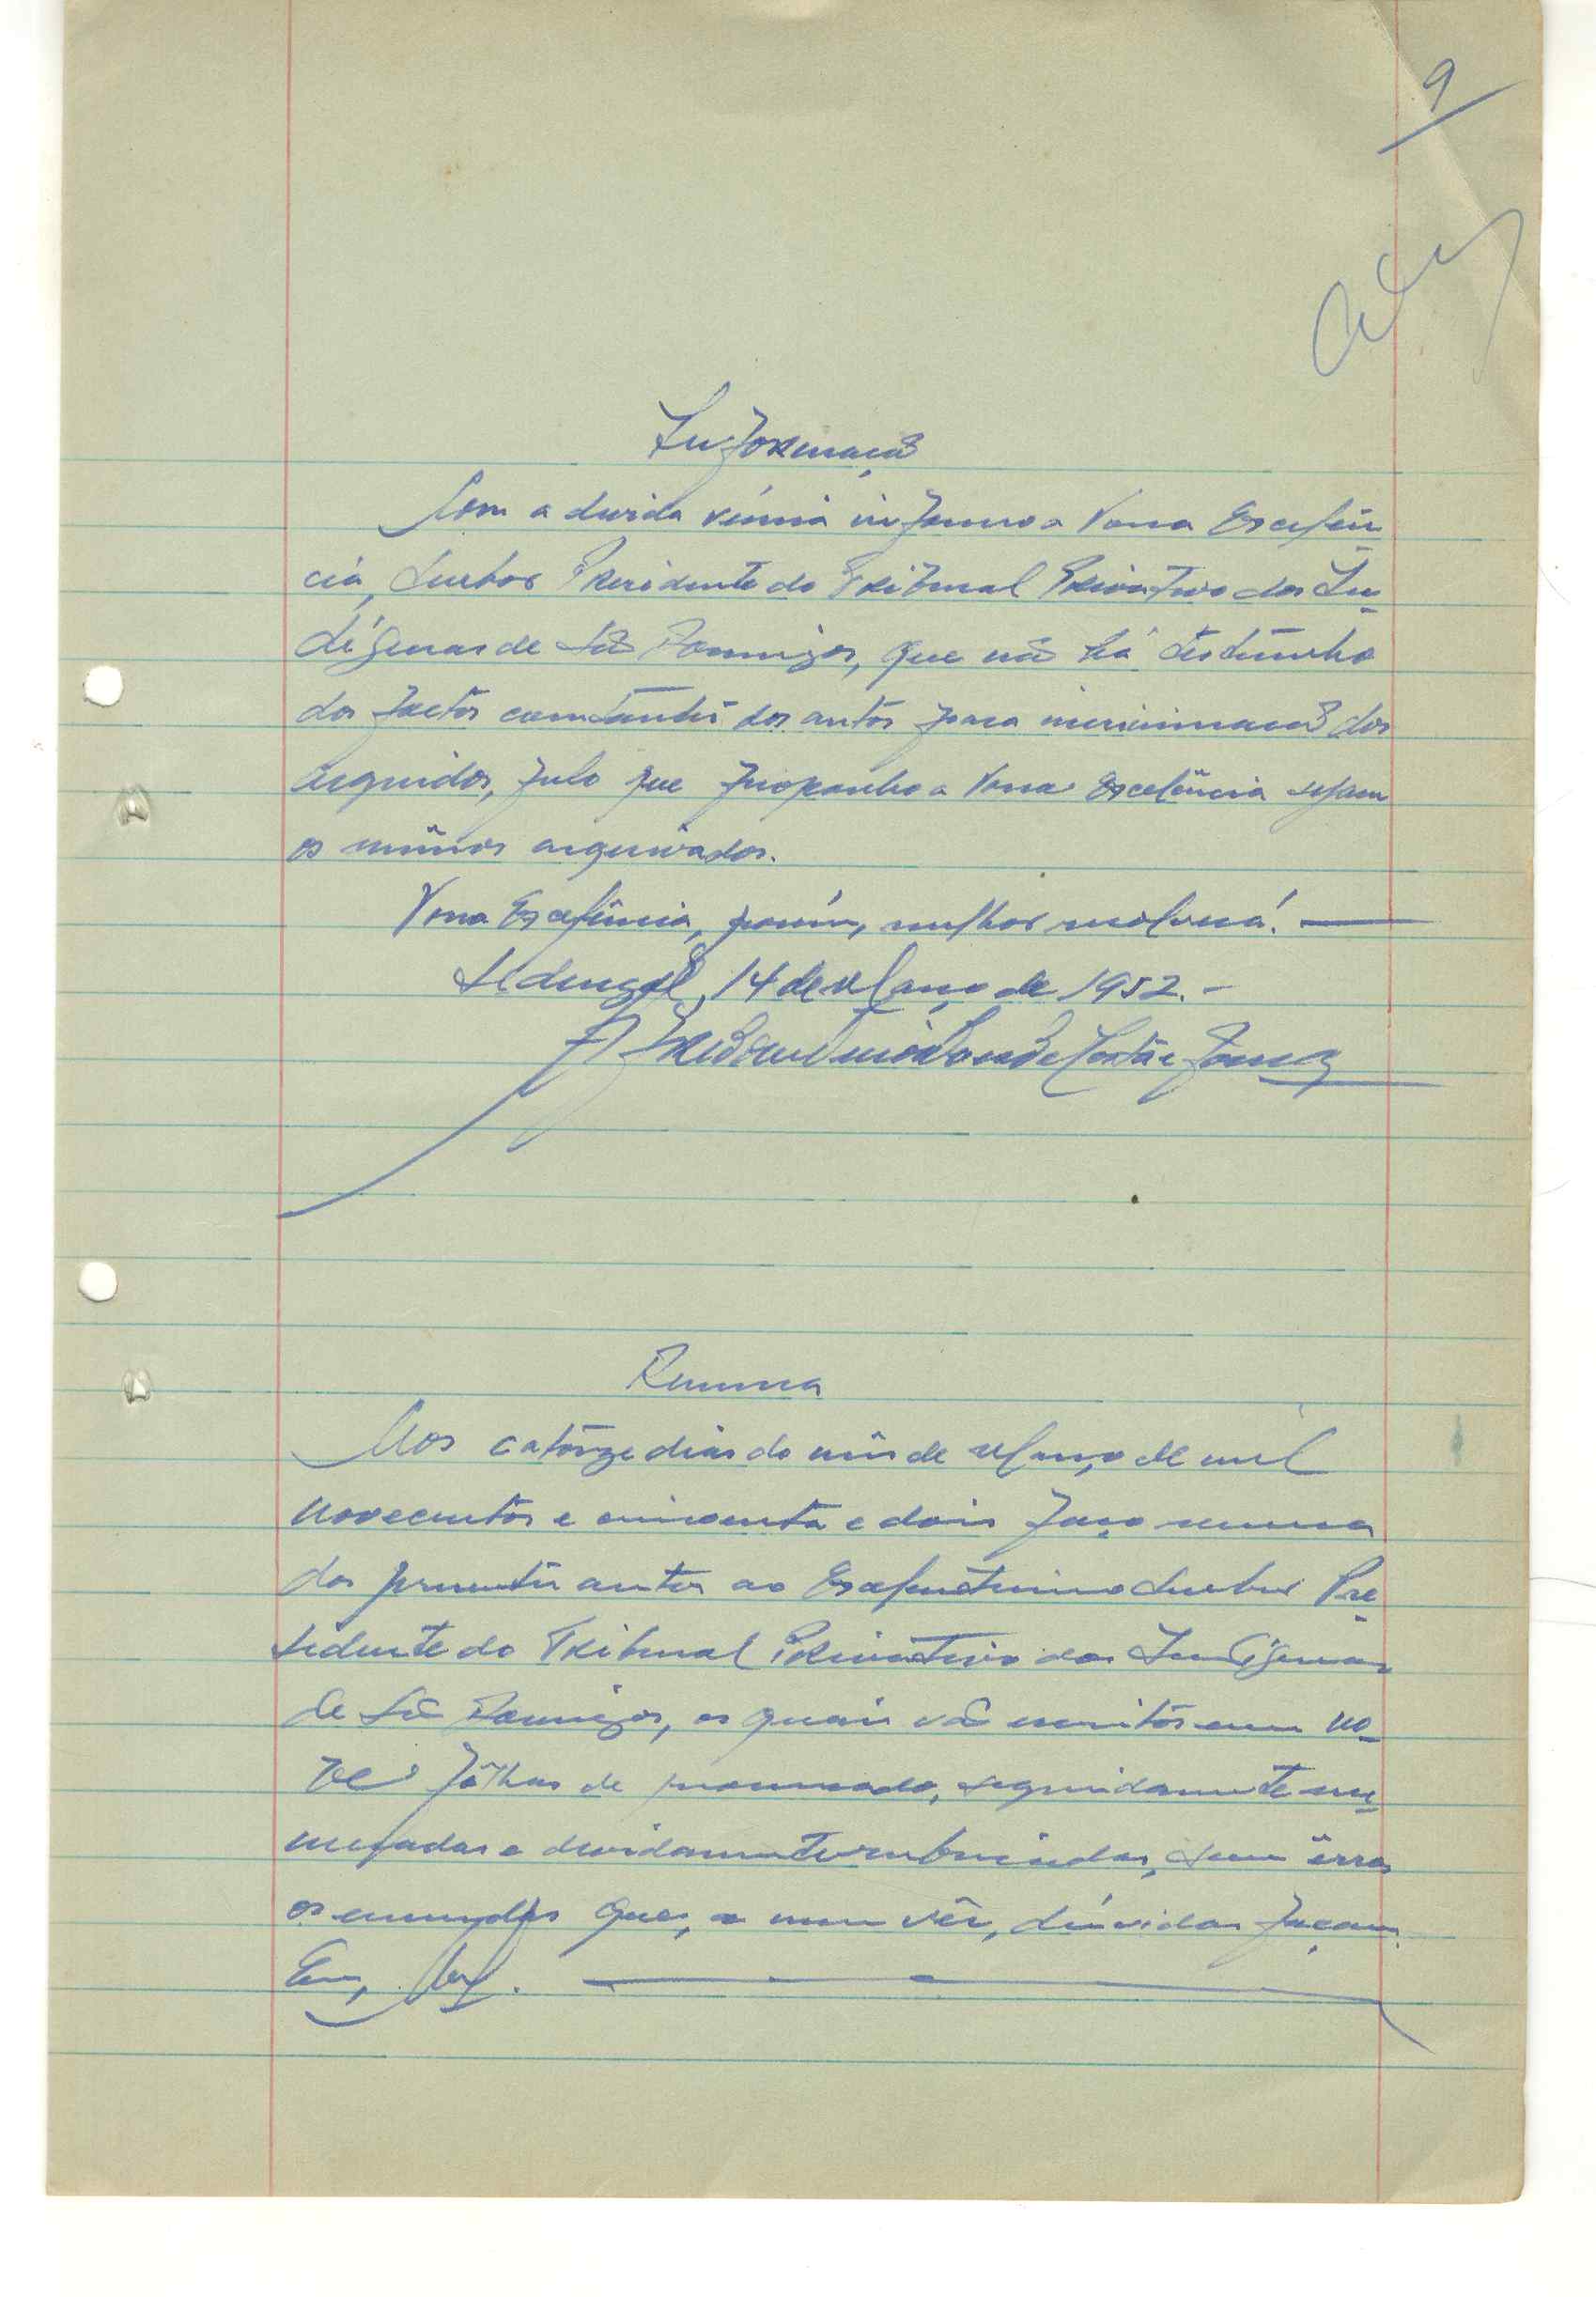 9
Informação
Com a devida vénia informo a Vossa Excelên-
cia, Senhor Presidente do Tribunal Privativo dos In-
dígenas de São Domingos, que não há testemunho
dos factos constantes dos autos para incriminação dos
arguidos, pelo que proponho a Vossa Excelência sejam
os mesmos arquivados.
Vossa Excelência, porém, melhor resolverá.
Sedengal, 14 de Março de 1952.-
Remessa
Aos catorze dias do mês de Março de mil
novecentos e cincoenta e dois faço remessa
dos presentes autos ao Excelentíssimo Senhor Pre-
sidente do Tribunal Privativo dos Indígenas
de São Domingos, os quais vão escritos em no-
ve fôlhas de processado, seguidamente nu-
meradas e devidamente rubricadas, sem êrros
os emendas que, a meu vêr, dúvidas façam.
Eu,